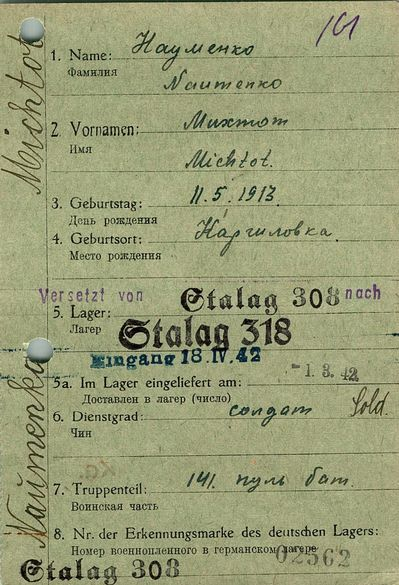 161
1. Name: Науменко
Фамилия
Naumenko
2. Vornamen: Михтот
Имя
Michtot.
3. Geburtstag: 11.5.1913
День рождения
4. Geburtsort: Каргиловка.
Место рождения
Versetzt von Stalag 308 nach
5. Lager: Stalag 318
Лагерь
Eingang 18.IV.42
5a. Im Lager eingeliefert am: -1.3.42
Доставлен в лагерь (число)
6. Dienstgrad: солдат Sold.
Чин
7. Truppenteil: 141. пуль бат.
Воинская часть
8. Nr. der Erkennungsmarke des deutschen Lagers:
Номер военнопленного в германском лагере 02562
Stalag 308
Naumenko
Michtot